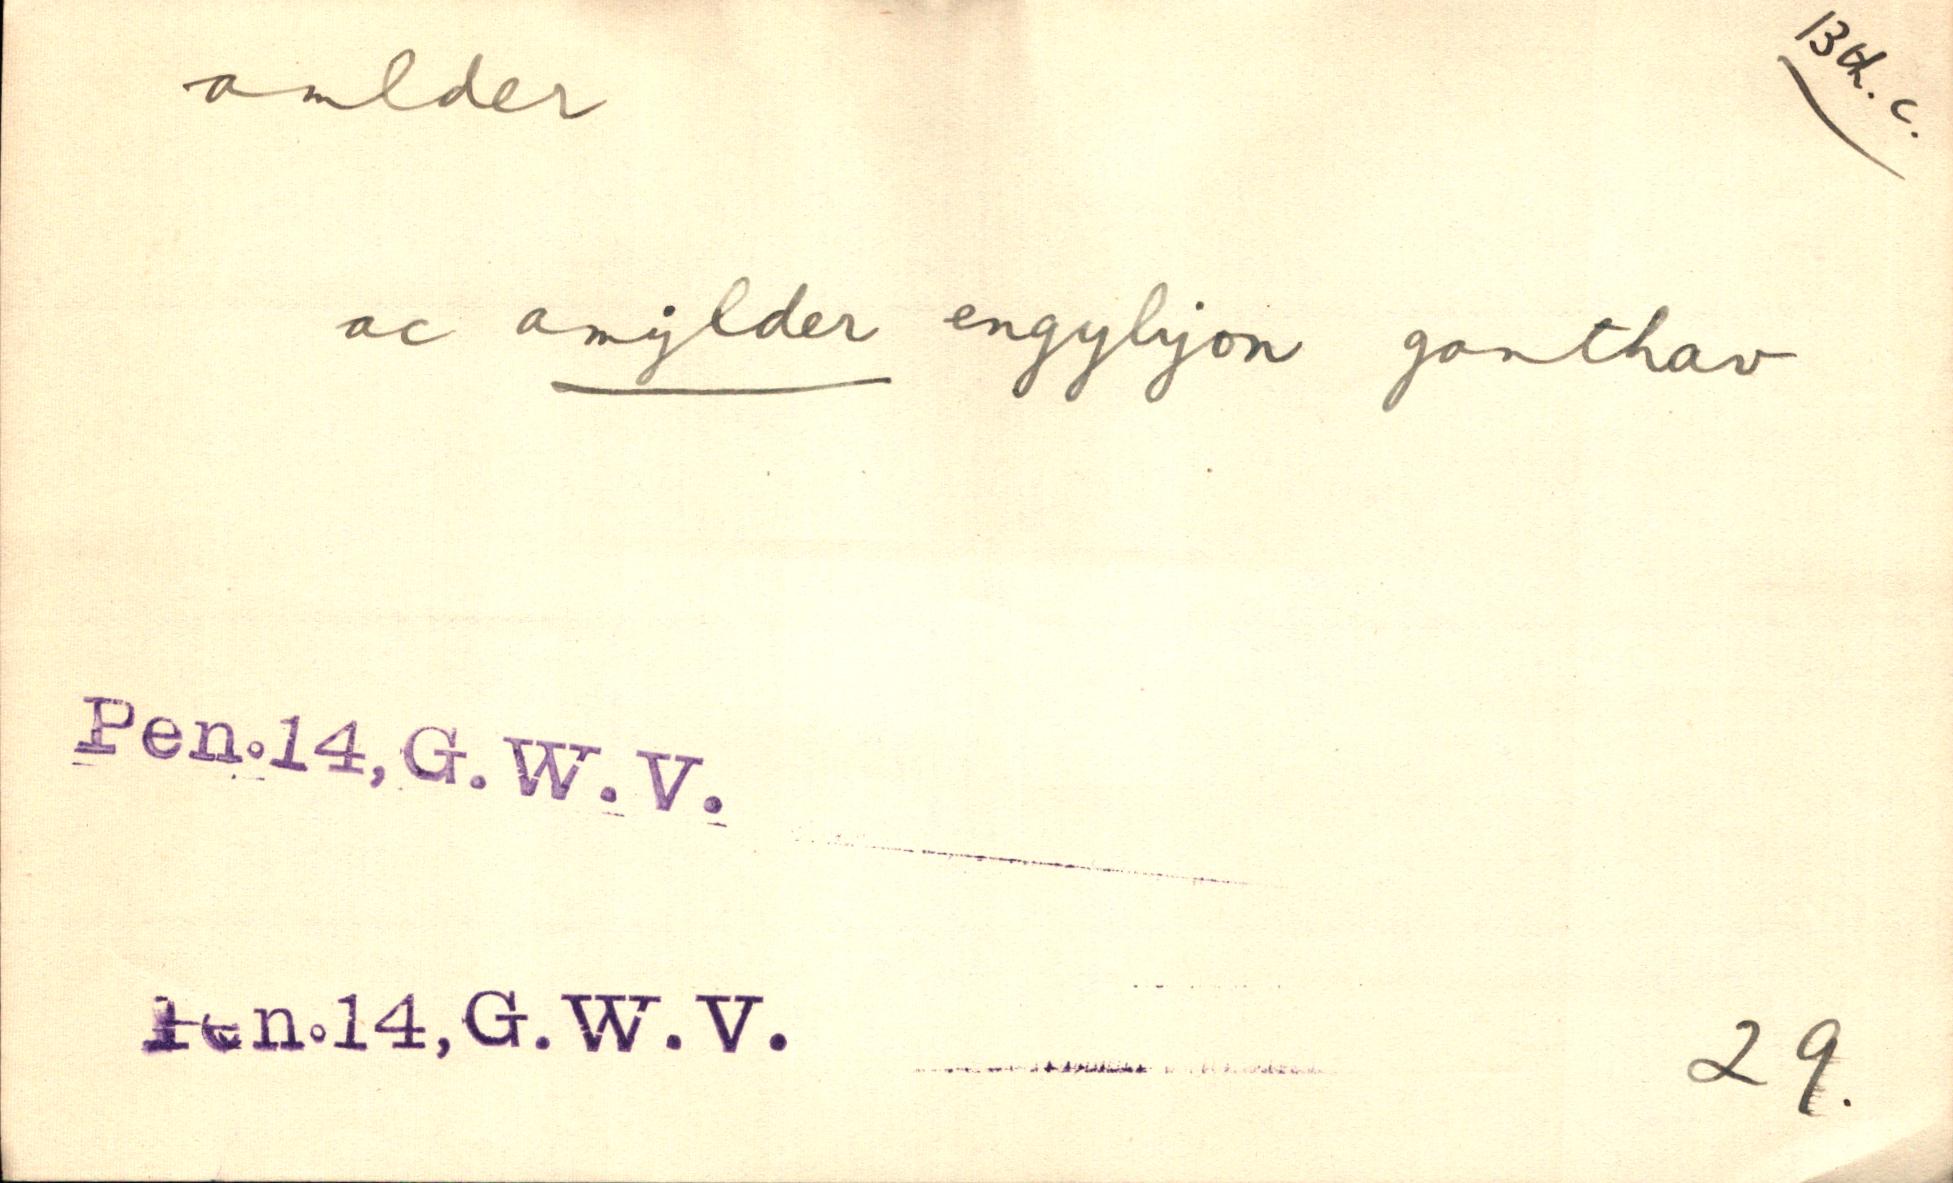 amlder
13th. c.
ac amylder engylyon ganthav
Pen.14, G.W.V.
Pen.14, G.W.V.
29.